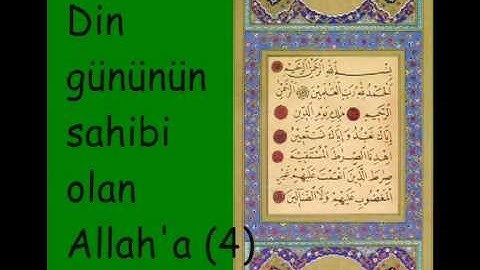 Din
gününün
sahibi
olan
Allah'a (4)
بِسْمِ اللَّهِ الرَّحْمَٰنِ الرَّحِيمِ
الْحَمْدُ لِلَّهِ رَبِّ الْعَالَمِينَ الرَّحْمَٰنِ
الرَّحِيمِ مَالِكِ يَوْمِ الدِّينِ
إِيَّاكَ نَعْبُدُ وَإِيَّاكَ نَسْتَعِينُ
اهْدِنَا الصِّرَاطَ الْمُسْتَقِيمَ
صِرَاطَ الَّذِينَ أَنْعَمْتَ عَلَيْهِمْ غَيْرِ
الْمَغْضُوبِ عَلَيْهِمْ وَلَا الضَّالِّينَ